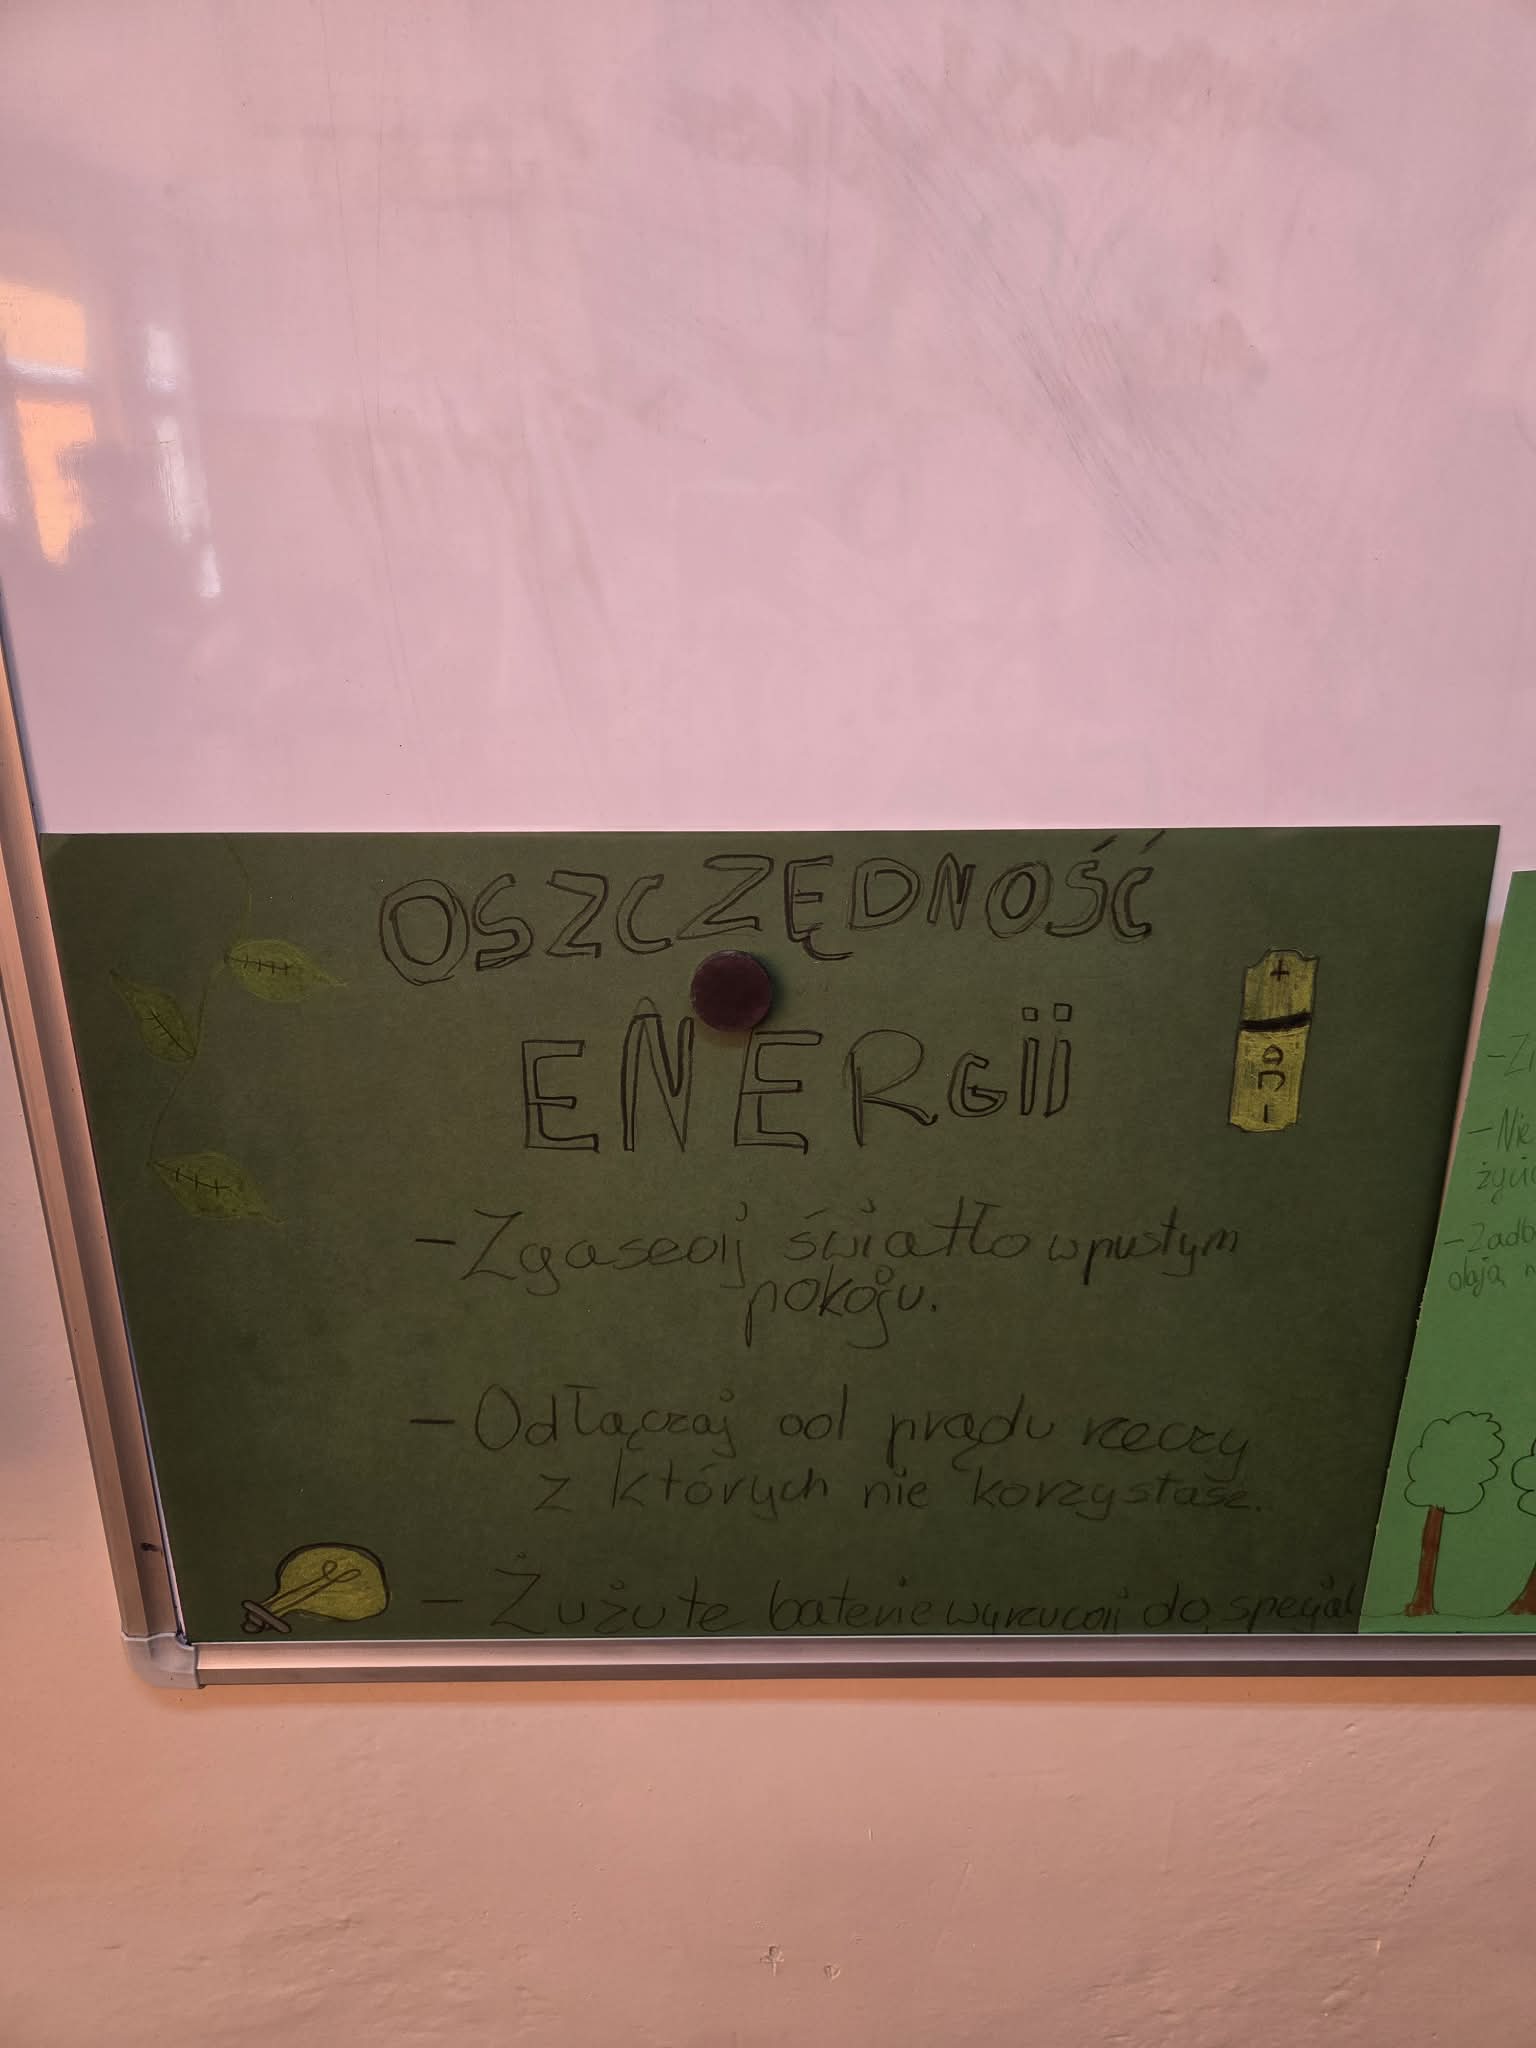 OSZCZĘDNOŚĆ
ENERGii
- Zgaseaij światło w pustym
pokoju.
- Odłączaj od prądu rzeczy
z których nie korzystasz.
- Żużute baterie wyrzucaij do specjal
- Nie
życie
- Zadb